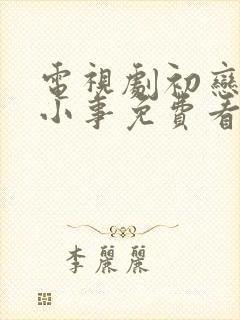 電視劇初戀
小事免費看
李麗麗